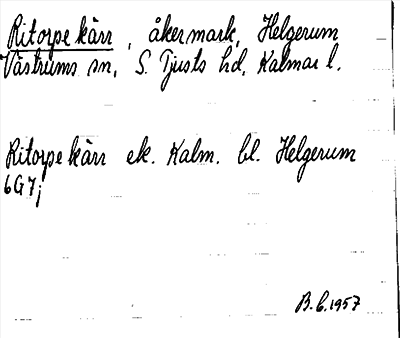 Ritorpe kärr, åkermark, Helgerum
Västrums sn, S. Tjusts hd, Kalmar l.
Ritorpe kärr ek. Kalm. bl. Helgerum
6G7;
B.C. 1957